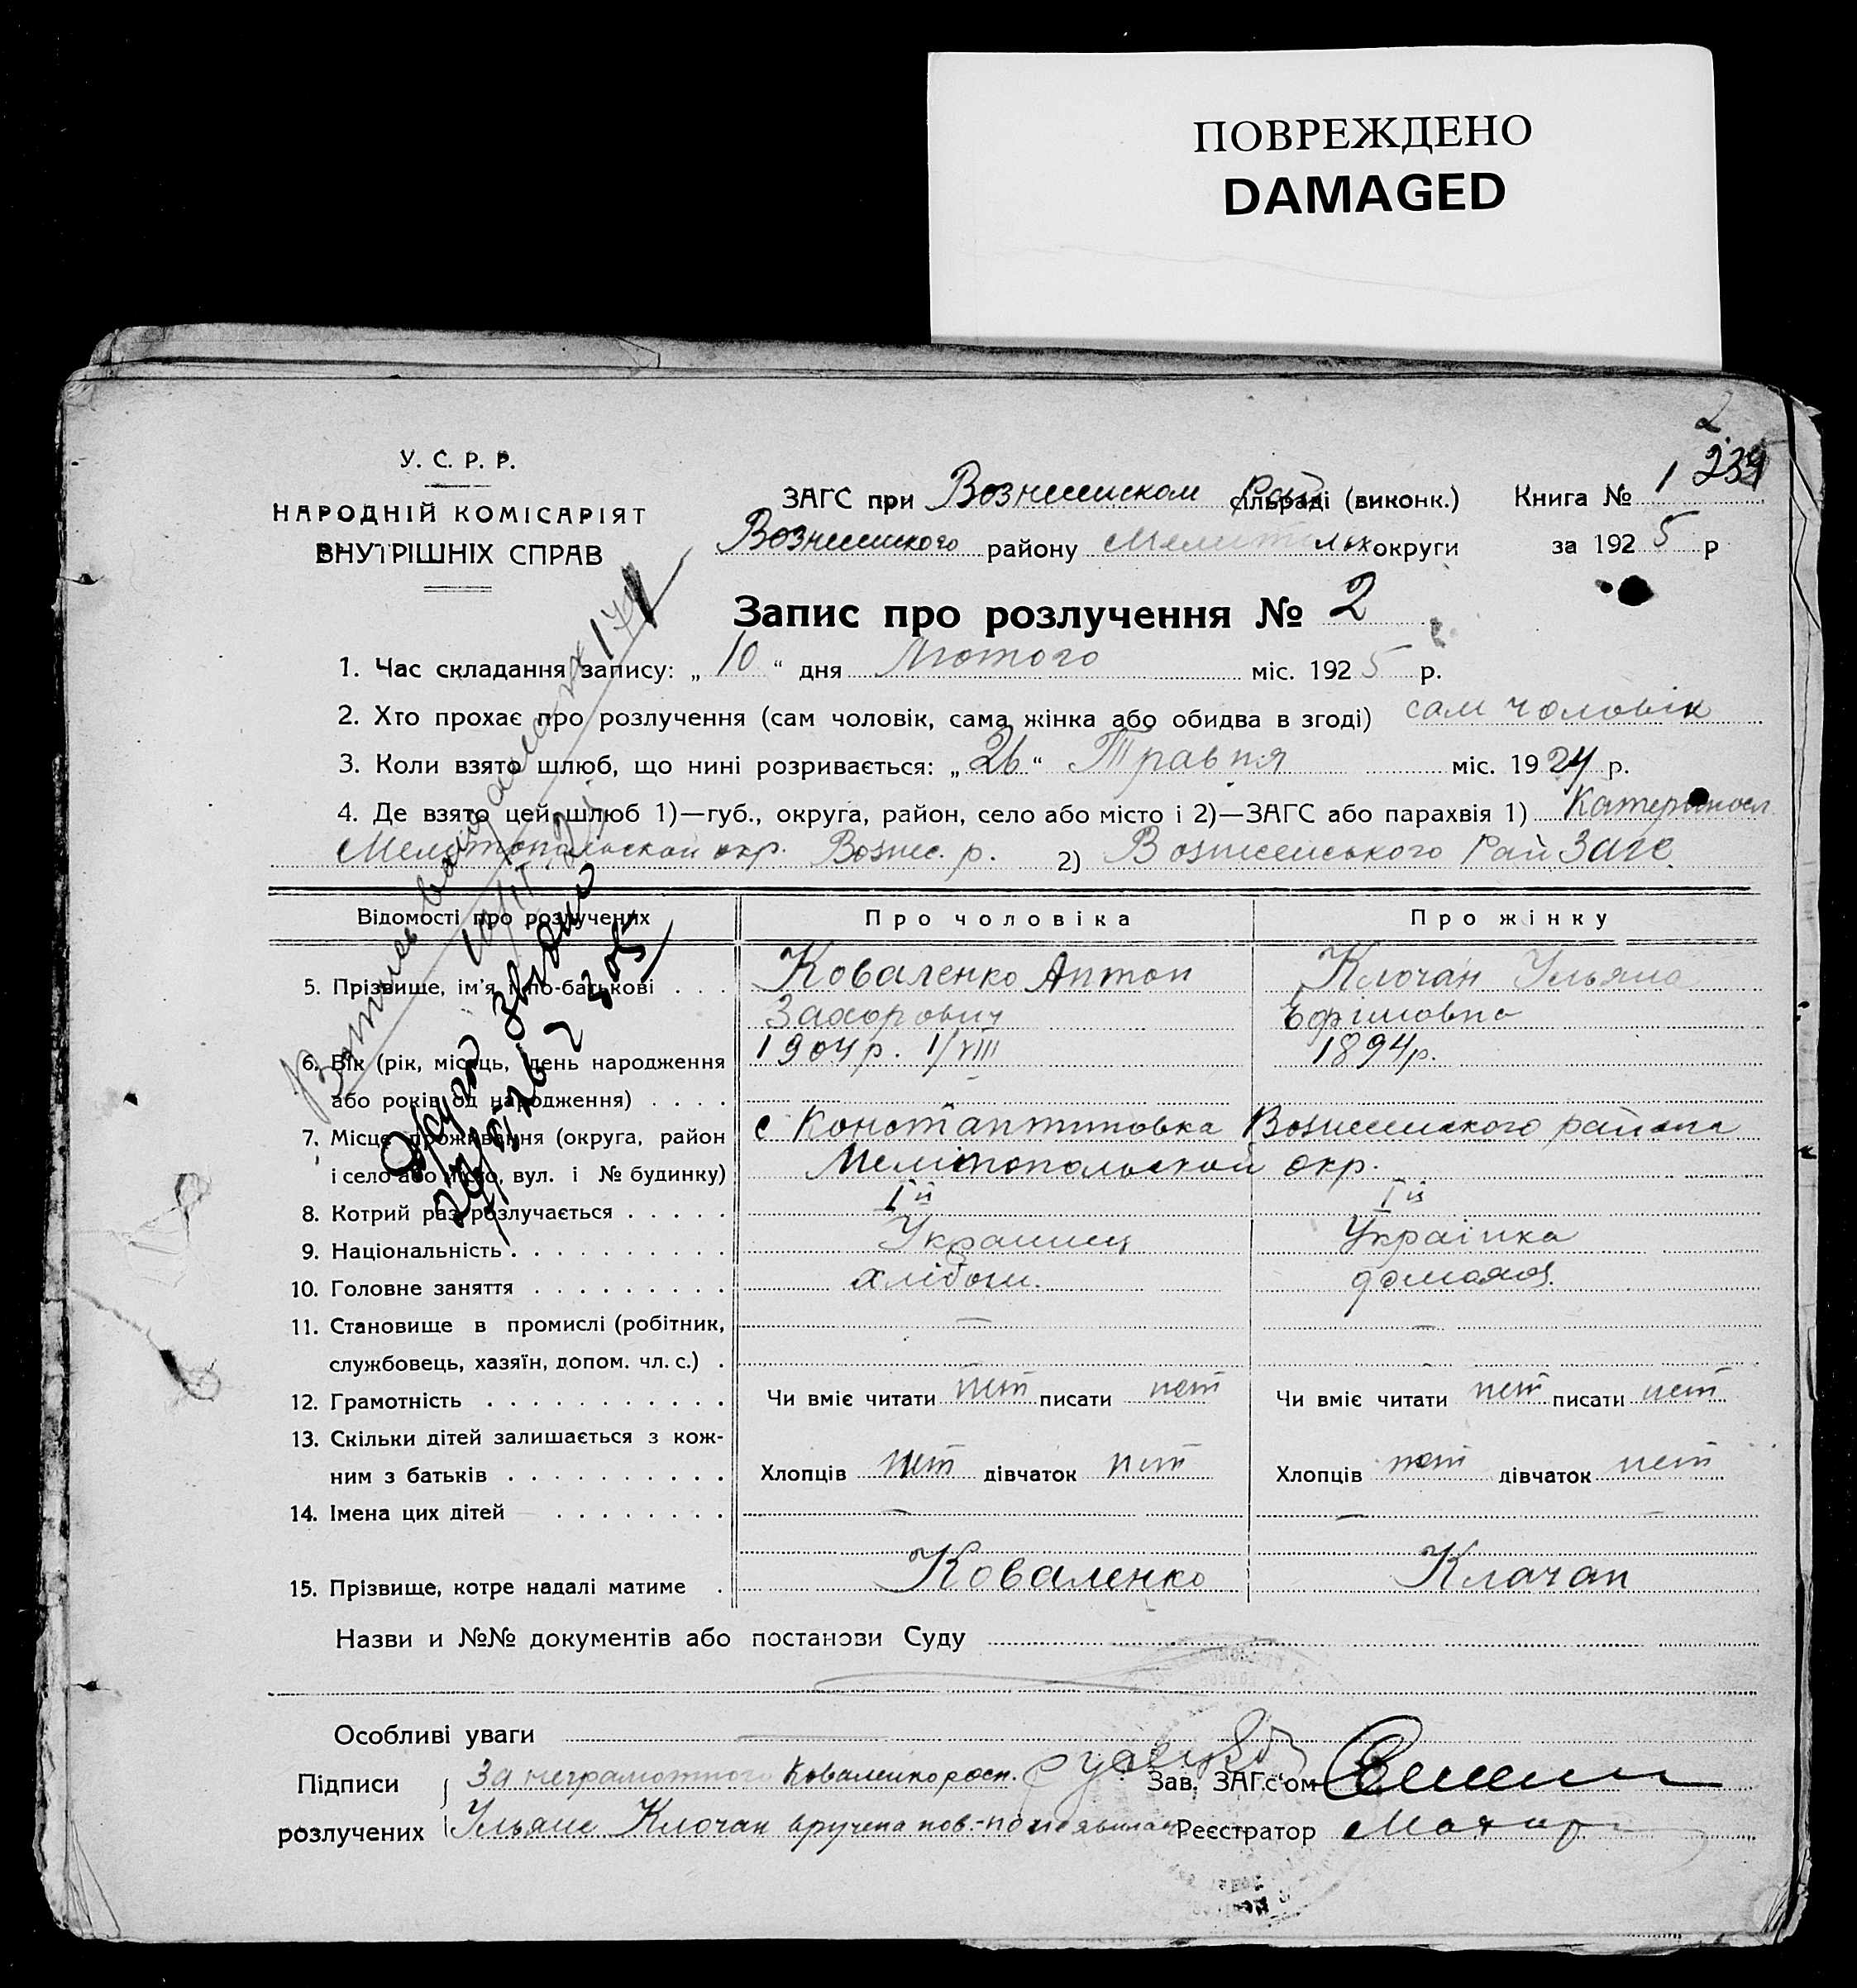 ПОВРЕЖДЕНО
DAMAGED
2
У. С. Р. Р.
НАРОДНІЙ КОМІСАРІЯТ
ВНУТРІШНІХ СПРАВ
ЗАГС при Вознесенском Рай сільраді (виконк.) Книга № 1 239
Вознесенского району Мелитопольск округи за 1925 р
Запис про розлучення № 2
1. Час складання запису: „10“ дня Лютого міс. 1925 р.
2. Хто прохає про розлучення (сам чоловік, сама жінка або обидва в згоді) сам чоловік
3. Коли взято шлюб, що нині розривається: „26“ Травня міс. 1924 р.
4. Де взято цей шлюб 1)—губ., округа, район, село або місто і 2)—ЗАГС або парахвія 1) Катериносл
Мелитопольской окр. Вознес. р. 2) Вознесенського Рай Загс.
Відомості про розлучених Про чоловіка Про жінку
5. Прізвище, ім'я і по-батькові . . . Коваленко Антон Клочан Ульяна
Захорович Ефимовна
6. Вік (рік, місяць, день народження 1904р. 1/VIII 1894р.
або років од народження) . . . .
7. Місце проживання (округа, район с Константиновка Вознесенского района
і село або місто, вул. і № будинку) Мелітопольской окр.
8. Котрий раз розлучається . . . . . Iй Iй
9. Національність . . . . . . . . . . Украинец Українка
10. Головне заняття . . . . . . . . . хлібоги. домохоз.
11. Становище в промислі (робітник, — —
службовець, хазяїн, допом. чл. с.) . -
12. Грамотність . . . . . . . . . . . Чи вміє читати нет писати нет Чи вміє читати нет писати нет
13. Скільки дітей залишається з кож-
ним з батьків . . . . . . . . . . Хлопців нет дівчаток нет Хлопців нет дівчаток нет
14. Імена цих дітей . . . . . . . . — —
15. Прізвище, котре надалі матиме . Коваленко Клочан
Назви и №№ документів або постанови Суду
Особливі уваги
Підписи За неграмотного Коваленко росп. Зав. ЗАГс'ом
розлучених Ульяне Клочан вручена пов.- не явилась Реєстратор